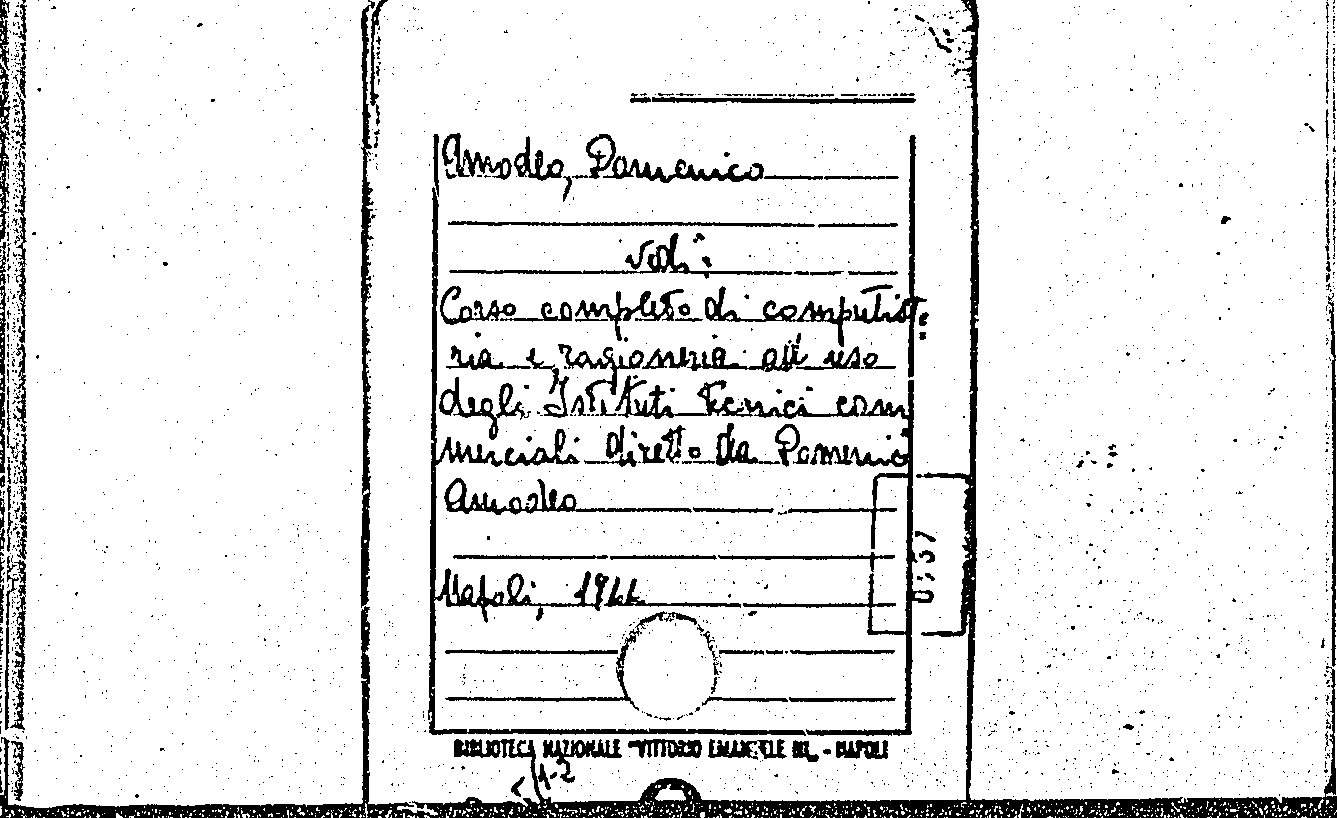 Amodeo, Domenico
vedi:
Corso completo di computiste-
ria e ragioneria all' uso
degli Istituti tecnici com
merciali diretto da Domenico
Amodeo
Napoli, 1944
BIBLIOTECA NAZIONALE "VITTORIO EMANUELE III" - NAPOLI